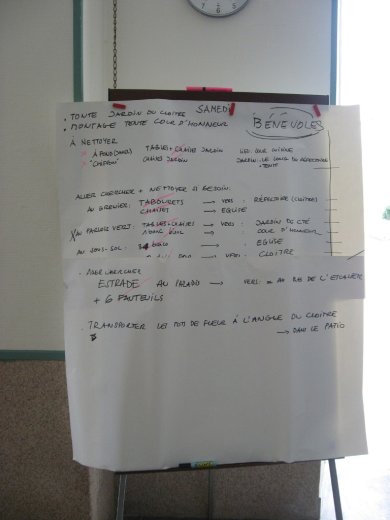 SAMEDI
• TONTE JARDIN DU CLOITRE
• MONTAGE TENTE COUR D'HONNEUR
BÉNÉVOLES
À NETTOYER
À FOND TABLES + CHAISES JARDIN
"CHIFFON" CHAISES JARDIN JARDIN: LE LONG DU RÉFECTOIRE
+ TENTE
ALLER CHERCHER + NETTOYER SI BESOIN
AU GRENIER: TABOURETS → VERS: RÉFECTOIRE (CLOITRE)
→ EQUIPE
AU PARLOIR VERT: TABLES + CHAISES → VERS: JARDIN DE CTÉ
→ COUR D'HONNEUR
AU SOUS-SOL: → EGLISE
VERS: CLOITRE
• ALLER CHERCHER
ESTRADE AU PARADIS → VERS: AU BAS DE L'ESCALIER
+ 6 FAUTEUILS
• TRANSPORTER LES POTS DE FLEUR À L'ANGLE DU CLOITRE
→ DANS LE PATIO